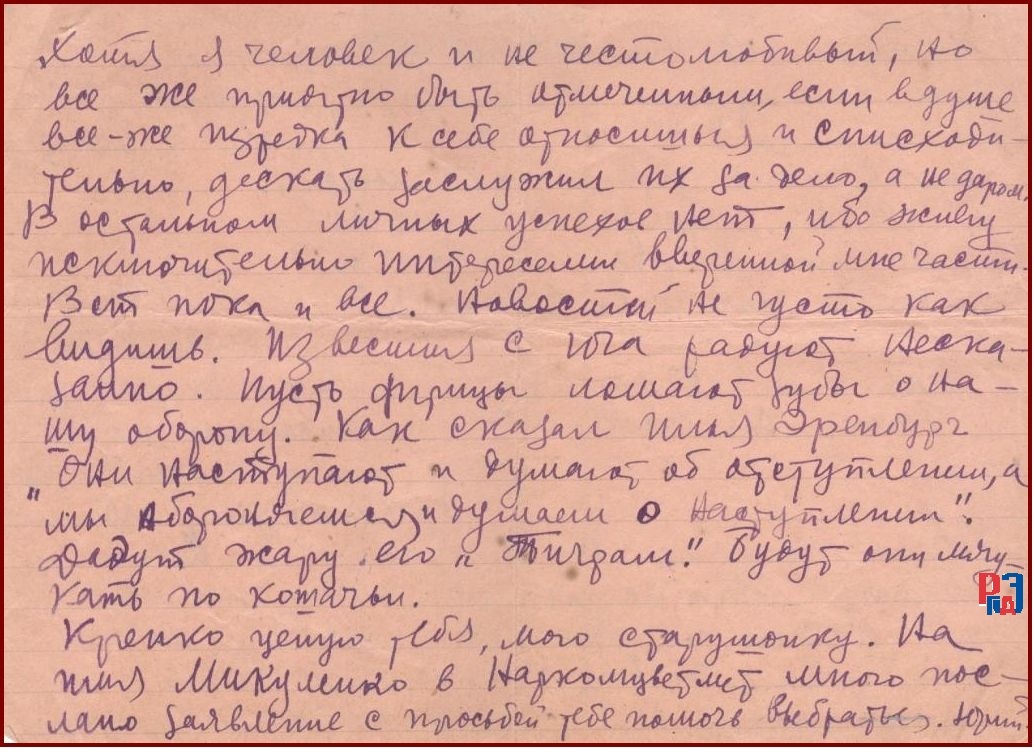 Хотя я человек и не честолюбивый, но
все же приятно быть отмеченным, если в душе
все-же изредка к себе относишься и снисходи-
тельно, дескать заслужил их за дело, а не даром.
В остальном личных успехов нет, ибо живу
исключительно интересами вверенной мне части.
Вот пока и все. Новостей не густо как
видишь. Известия с юга радуют неска-
занно. Пусть фрицы ломают зубы о на-
шу оборону. Как сказал Илья Эренбург
"Они наступают и думают об отступлении, а
мы обороняемся и думаем о наступлении".
Дадут жару его "Тиграм". Будут они мяу-
кать по кошачьи.
Крепко целую тебя, мою старушонку. На
имя Микуленко в Наркомцветмет мною пос-
лано заявление с просьбой тебе помочь выбраться. Юрий
РГЭА